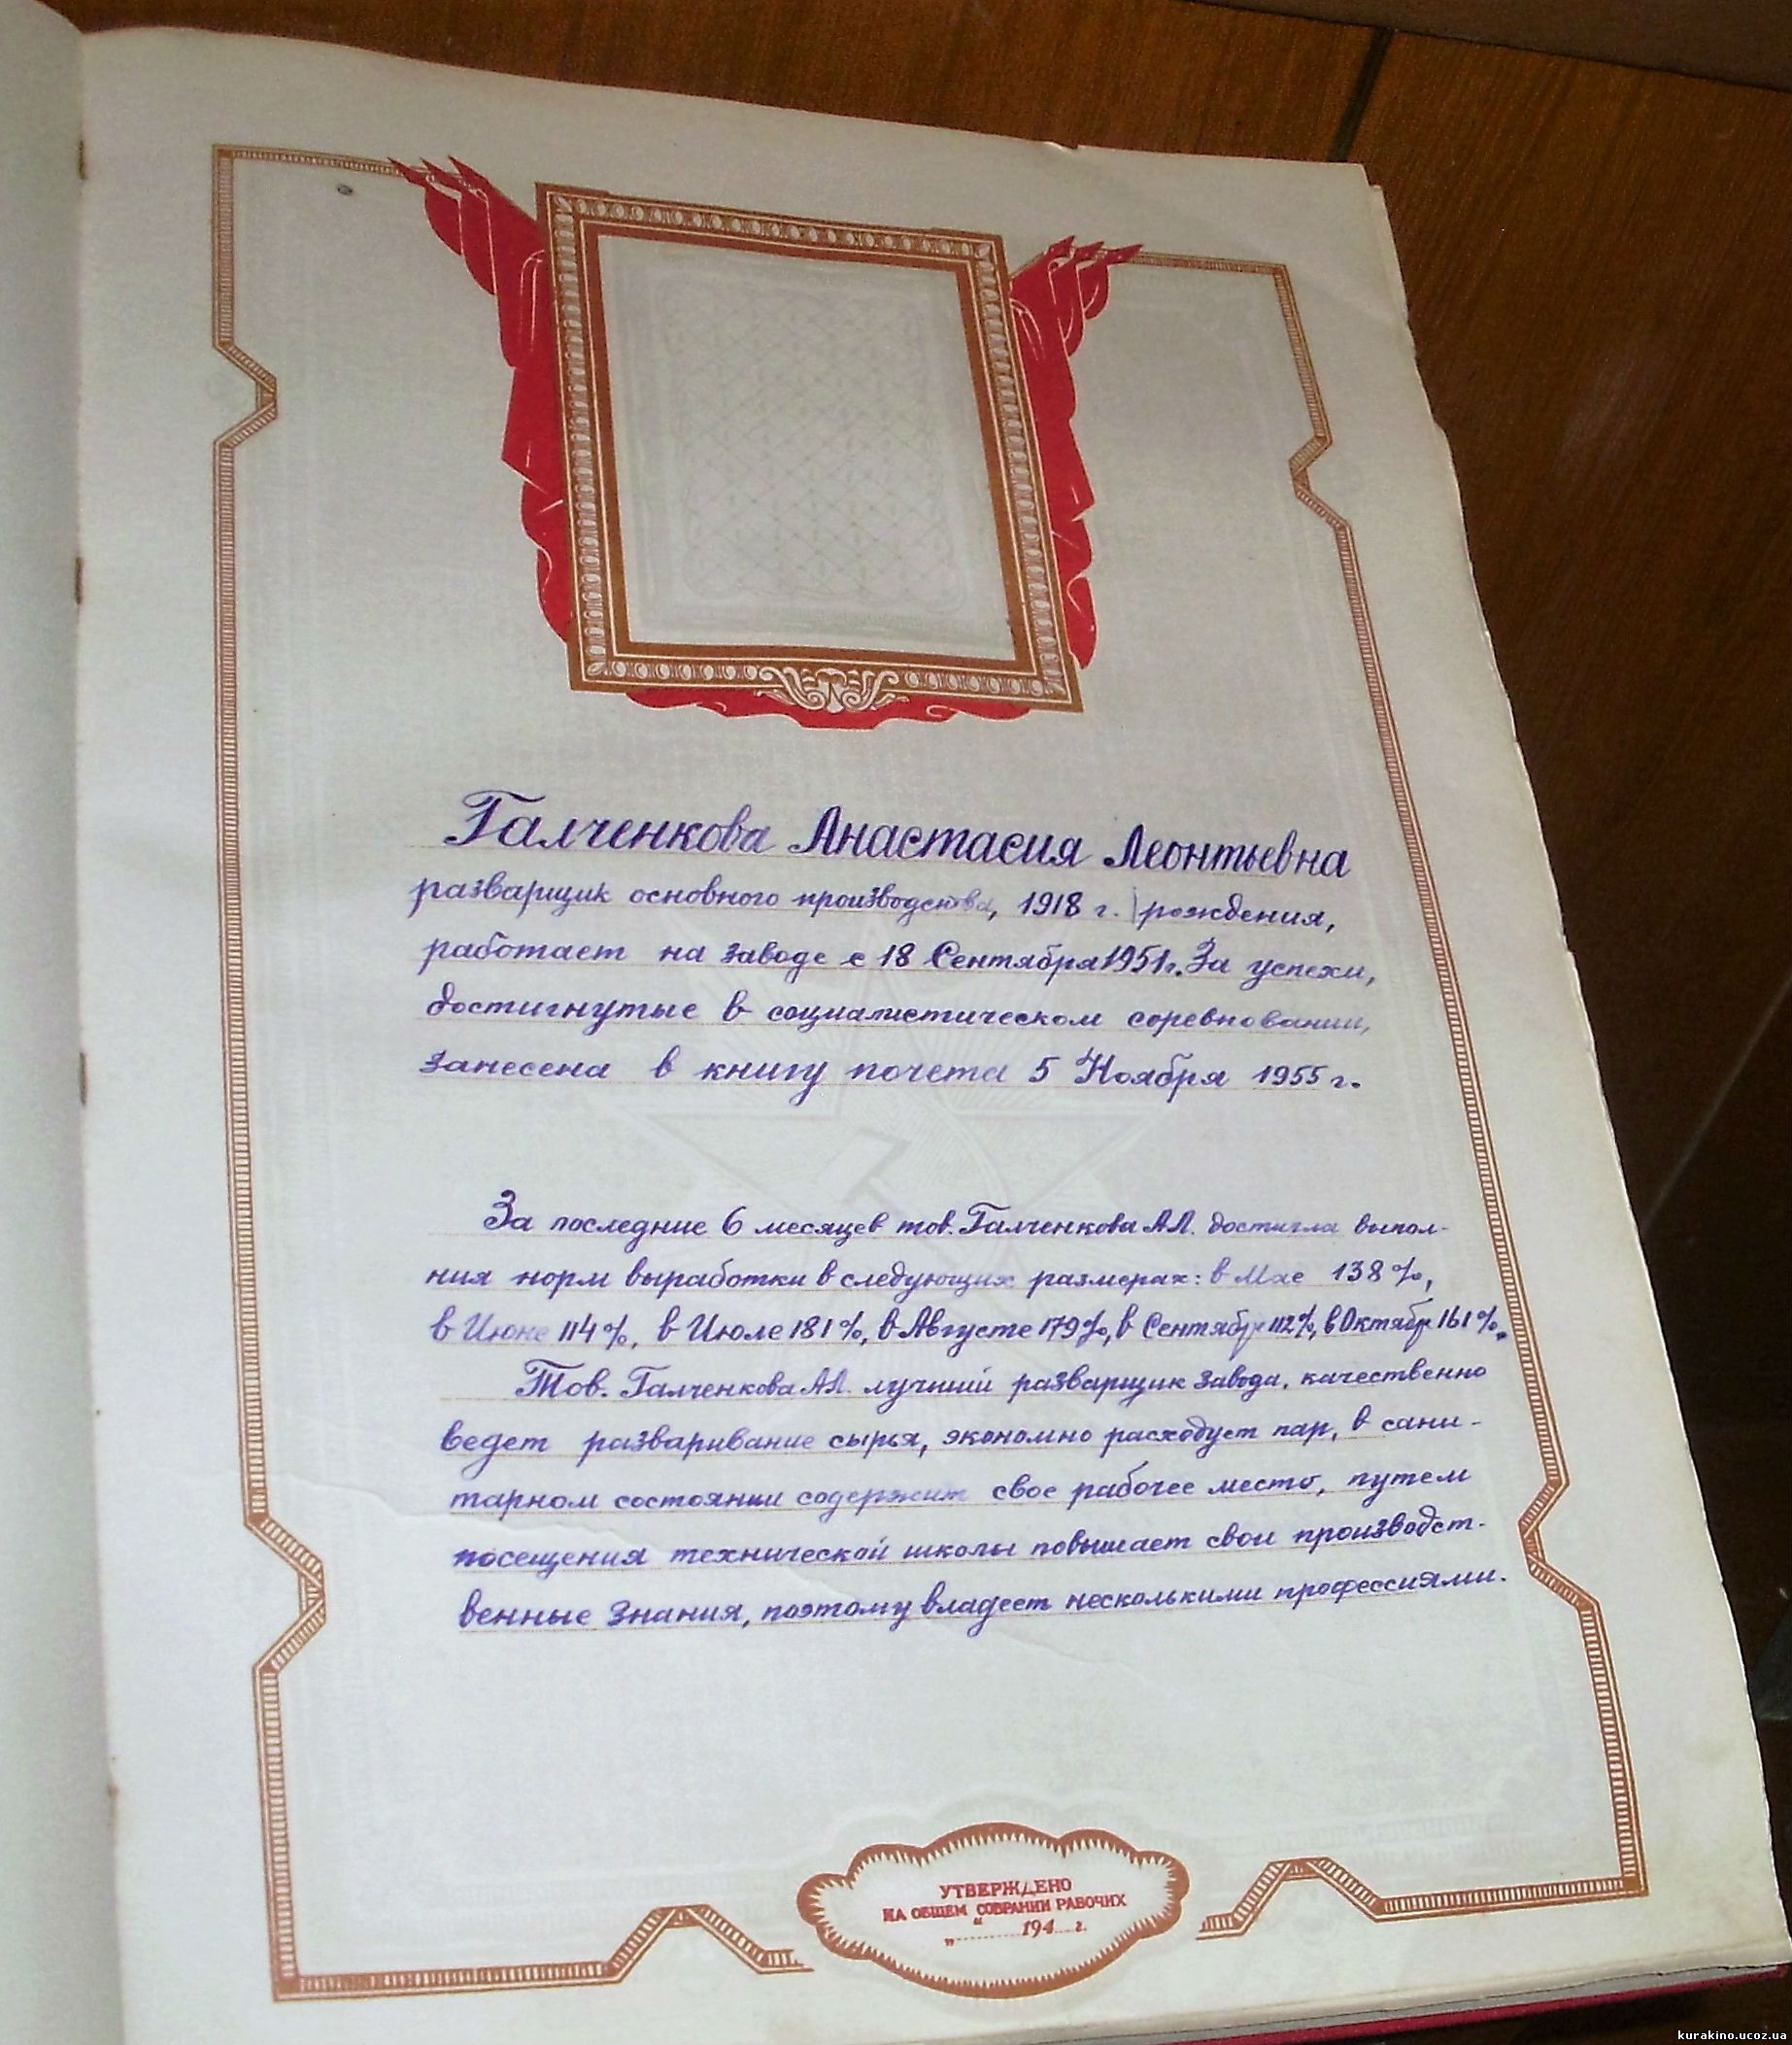 Галченкова Анастасия Леонтьевна
разварщик основного производства, 1918 г. рождения,
работает на заводе с 18 Сентября 1951г. За успехи,
достигнутые в социалистическом соревновании,
занесена в книгу почета 5 Ноября 1955 г.
За последние 6 месяцев тов. Галченкова А.Л. достигла выпол-
ния норм выработки в следующих размерах: в Мае 138%,
в Июне 114%, в Июле 181%, в Августе 179%, в Сентябр 112%, в Октябр 161%.
Тов. Галченкова А.Л. лучший разварщик завода, качественно
ведет разваривание сырья, экономно расходует пар, в сани-
тарном состоянии содержит свое рабочее место, путем
посещения технической школы повышает свои производст-
венные знания, поэтому владеет несколькими профессиями.
УТВЕРЖДЕНО
НА ОБЩЕМ СОБРАНИИ РАБОЧИХ
„.........." 194...г.
kurakino.ucoz.ua